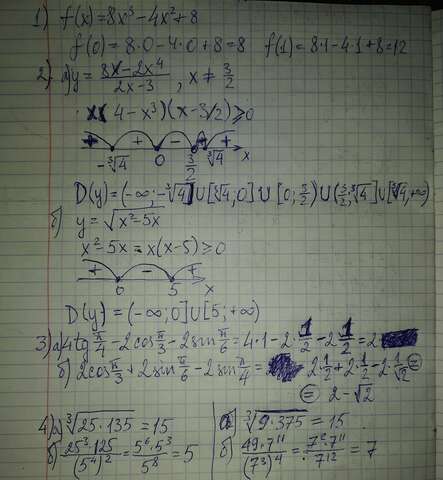 1) f(x)=8x³-4x²+8
f(0)=8·0-4·0+8=8 f(1)=8·1-4·1+8=12
2) a) y = (8x-2x⁴)/(2x-3), x≠3/2
x(4-x³)(x-3/2)≥0
+ + - + +
-∛4 0 3/2 ∛4 x
D(y)=(-∞;-∛4]∪[∛4;0]∪[0;5/2)∪(3/2;∛4]∪[∛4;+∞)
б) y=√(x²-5x)
x²-5x=x(x-5)≥0
+ - +
0 5 x
D(y)=(-∞;0]∪[5;+∞)
3) a) 4tg π/4 - 2cos π/3 - 2sin π/6 = 4·1-2·1/2-2·1/2=2
б) 2cos π/3 + 2sin π/6 - 2sin π/4 = 2·1/2+2·1/2-2·1/√2 =
= 2-√2
4) a) ∛(25·135) = 15
б) (25³·125)/(5⁴)² = (5⁶·5³)/5⁸ = 5
a) ∛(9·375) = 15
б) (49·7¹¹)/(7³)⁴ = (7²·7¹¹)/7¹² = 7